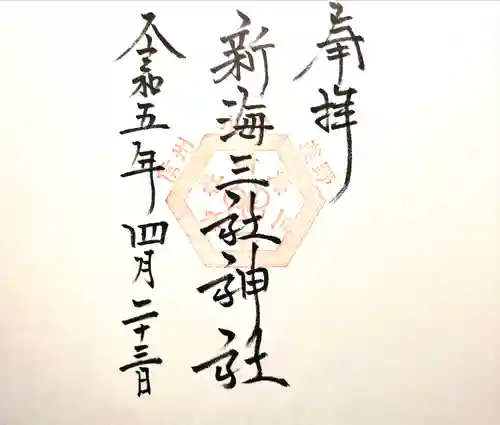 奉拝
新海三社神社
令和五年四月二十三日
信州